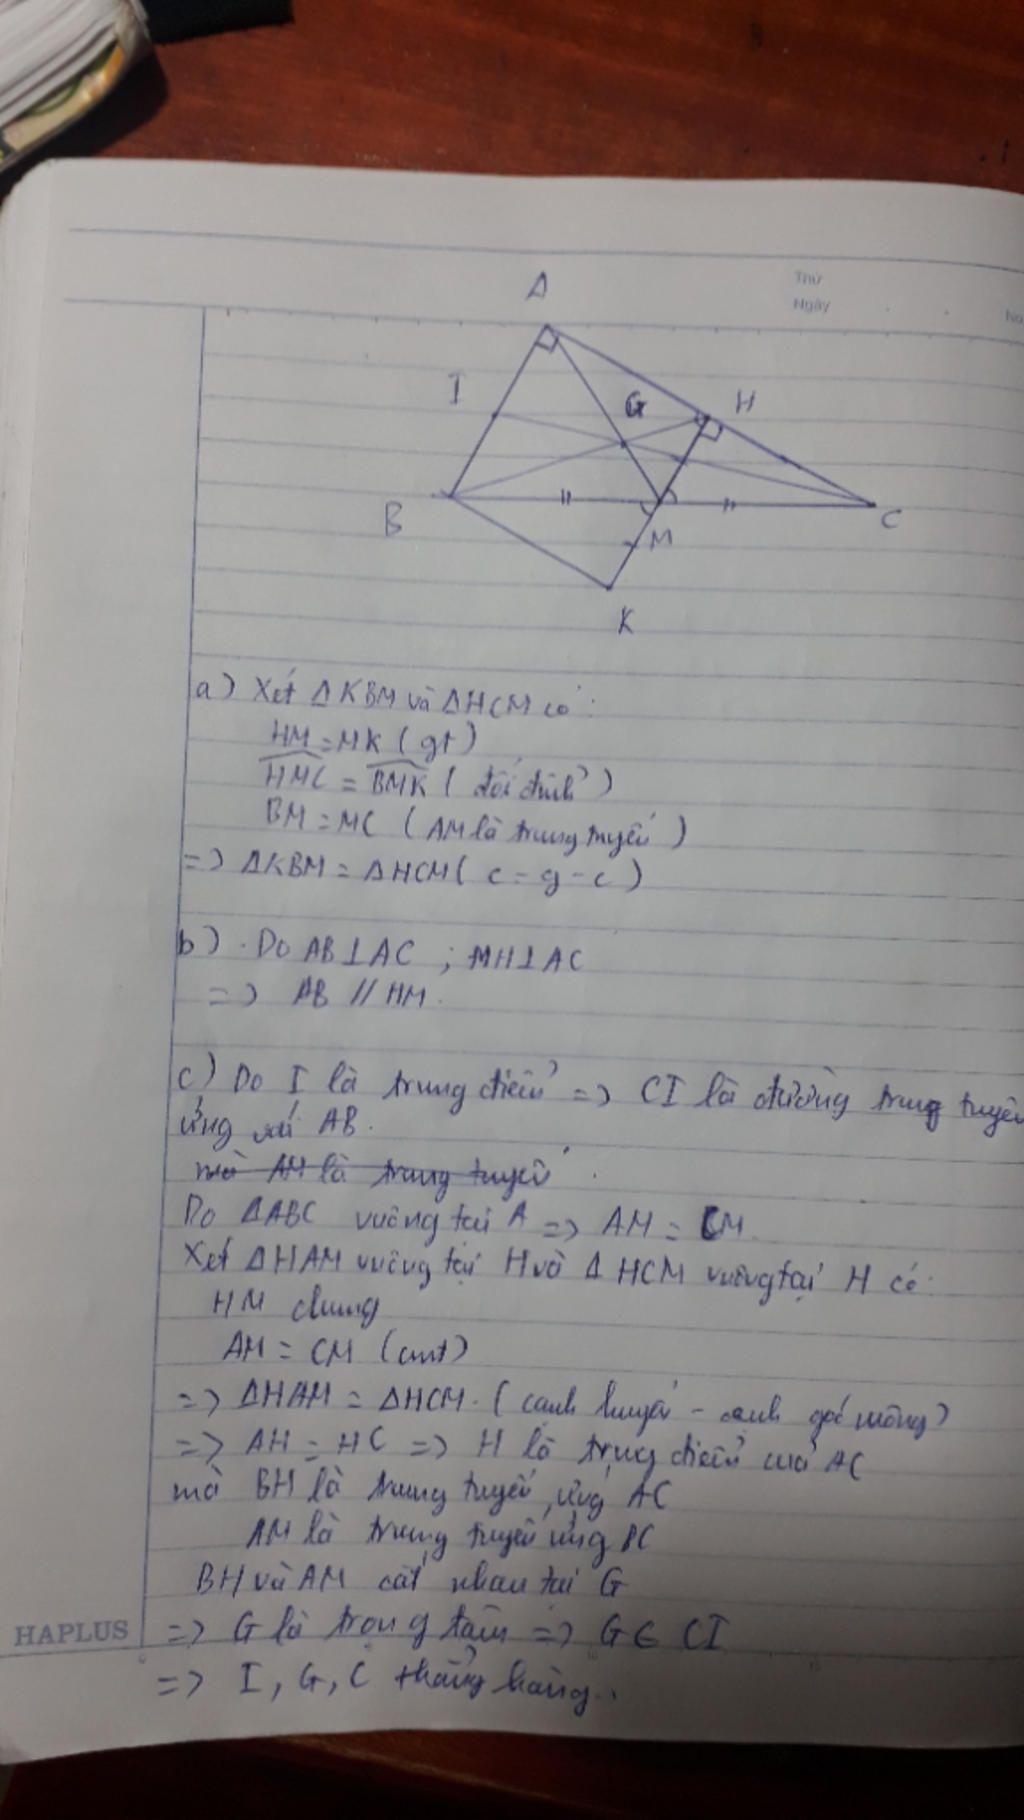 Thứ
Ngày
No
A
I
G
H
B
M
C
K
a) Xét ΔKBM và ΔHCM có:
HM = MK (gt)
HMC = BMK (đối đỉnh)
BM = MC (AM là trung tuyến)
=> ΔKBM = ΔHCM (c-g-c)
b) . Do AB⊥AC ; MH⊥AC
=> AB // HM.
c) Do I là trung điểm => CI là đường trung tuyến
ứng với AB.
mà AM là trung tuyến.
Do ΔABC vuông tại A => AM = CM.
Xét ΔHAM vuông tại H và ΔHCM vuông tại H có:
HM chung
AM = CM (cmt)
=> ΔHAM = ΔHCM. (cạnh huyền - cạnh góc vuông)
=> AH = HC => H là trung điểm của AC
mà BH là trung tuyến ứng AC
AM là trung tuyến ứng BC
BH và AM cắt nhau tại G
HAPLUS
=> G là trọng tâm => G ∈ CI
=> I, G, C thẳng hàng.